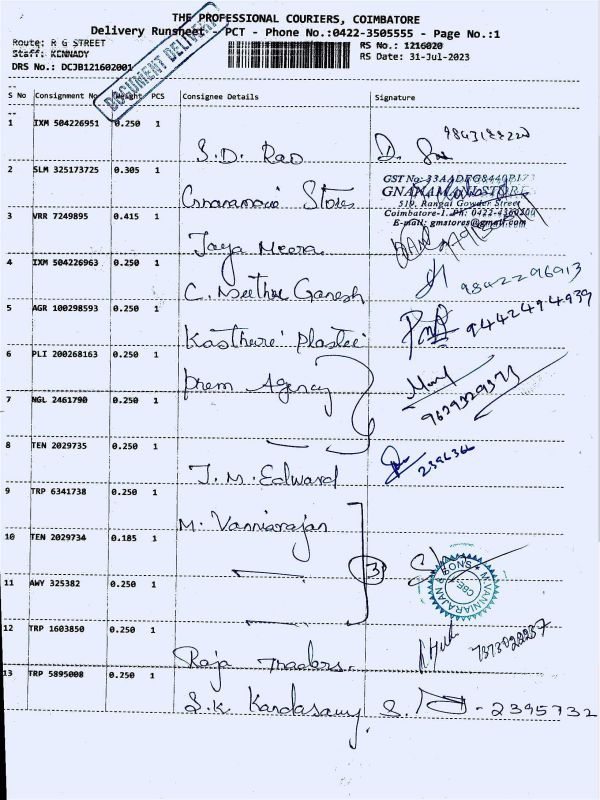 THE PROFESSIONAL COURIERS, COIMBATORE
Delivery Runsheet - PCT - Phone No.:0422-3505555 - Page No.:1
Route: R G STREET
RS No.: 1216020
Staff: KENNADY
RS Date: 31-Jul-2023
DRS No.: DCJB121602001
DOCUMENT DELIVERY
S No Consignment No Weight PCS Consignee Details Signature
1 IXM 504226951 0.250 1
S.D. Rao 9843188220
2 SLM 325173725 0.305 1
Stores
GST No: 33AADFG8440B1
GNANAMANI STORE
519, Rangai Gowder Street
Coimbatore-1. Ph: 0422-4360300
E-mail: gmstores@gmail.com
3 VRR 7249895 0.415 1
Jaya Meera
4 IXM 504226963 0.250 1
C. Meethu Ganesh 9842296913
5 AGR 100298593 0.250 1
Kasthuri Plastic 9442494939
6 PLI 200268163 0.250 1
Prem Agency
7 NGL 2461790 0.250 1
9629329373
8 TEN 2029735 0.250 1
J. M. Edward 2396366
9 TRP 6341738 0.250 1
M. Vanniarajan
10 TEN 2029734 0.185 1
3
M.VANNIARAJAN & SONS
CBE
11 AWY 325382 0.250 1
12 TRP 1603850 0.250 1
Raja Traders. 7373028237
13 TRP 5895008 0.250 1
S.K Kandasamy S. - 2395732